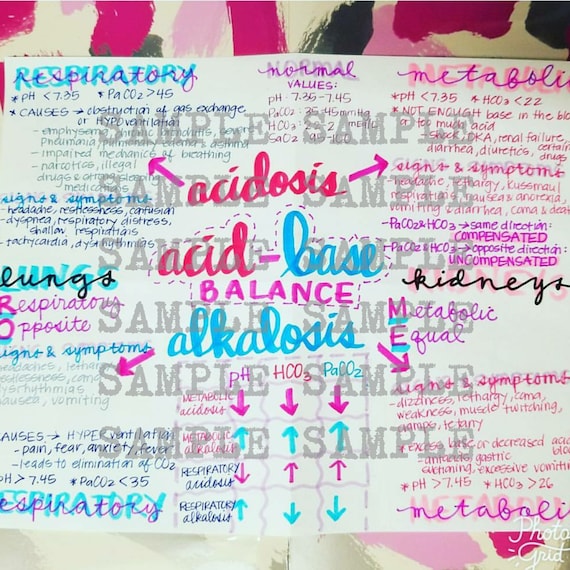 RESPIRATORY
respiratory
* pH < 7.35 * PaCO2 > 45
* CAUSES → obstruction of gas exchange
or HYPOventilation
- emphysema, bronchitis, severe
pneumonia, pulmonary edema & asthma
- impaired mechanics of breathing
- narcotics, illegal
drugs & or other sleeping
medications
signs & symptoms
- headache, restlessness, confusion
- dyspnea, respiratory distress,
shallow respirations
- tachycardia, dysrhythmias
normal
VALUES:
pH - 7.35-7.45
PaCO2 - 35-45 mmHg
HCO3 - 22-26 mEq/L
SaO2 95-100
metabolic
* pH < 7.35 * HCO3 < 22
* NOT ENOUGH base in the blood
or too much acid
- shock, DKA, renal failure,
diarrhea, diuretics, certain
drugs
signs & symptoms
- headache, lethargy, kussmaul
respirations, nausea & anorexia,
vomiting & diarrhea, coma & death
PaCO2 & HCO3 → same direction:
COMPENSATED
PaCO2 & HCO3 → opposite direction:
UNCOMPENSATED
acidosis
acid-base
BALANCE
alkalosis
lungs
Respiratory
Opposite
signs & symptoms
headaches, lethargy
restlessness, coma
dysrhythmias
nausea, vomiting
CAUSES → HYPERventilation
- pain, fear, anxiety, fever
- leads to elimination of CO2
pH > 7.45 * PaCO2 < 35
RESPIRATORY
respiratory
pH HCO3 PaCO2
METABOLIC acidosis ↓ ↓ ↓
METABOLIC alkalosis ↑ ↑ ↑
RESPIRATORY acidosis ↓ ↑ ↑
RESPIRATORY alkalosis ↑ ↓ ↓
kidneys
Metabolic
Equal
signs & symptoms
- dizziness, lethargy, coma,
weakness, muscle twitching,
cramps, tetany
* excess base or decreased acid
- antacids, gastric
suctioning, excessive vomiting
* pH > 7.45 * HCO3 > 26
METABOLIC
metabolic
SAMPLE SAMPLE
SAMPLE SAMPLE
SAMPLE SAMPLE
SAMPLE SAMPLE
SAMPLE SAMPLE
SAMPLE SAMPLE
SAMPLE SAMPLE
Photo
Grid